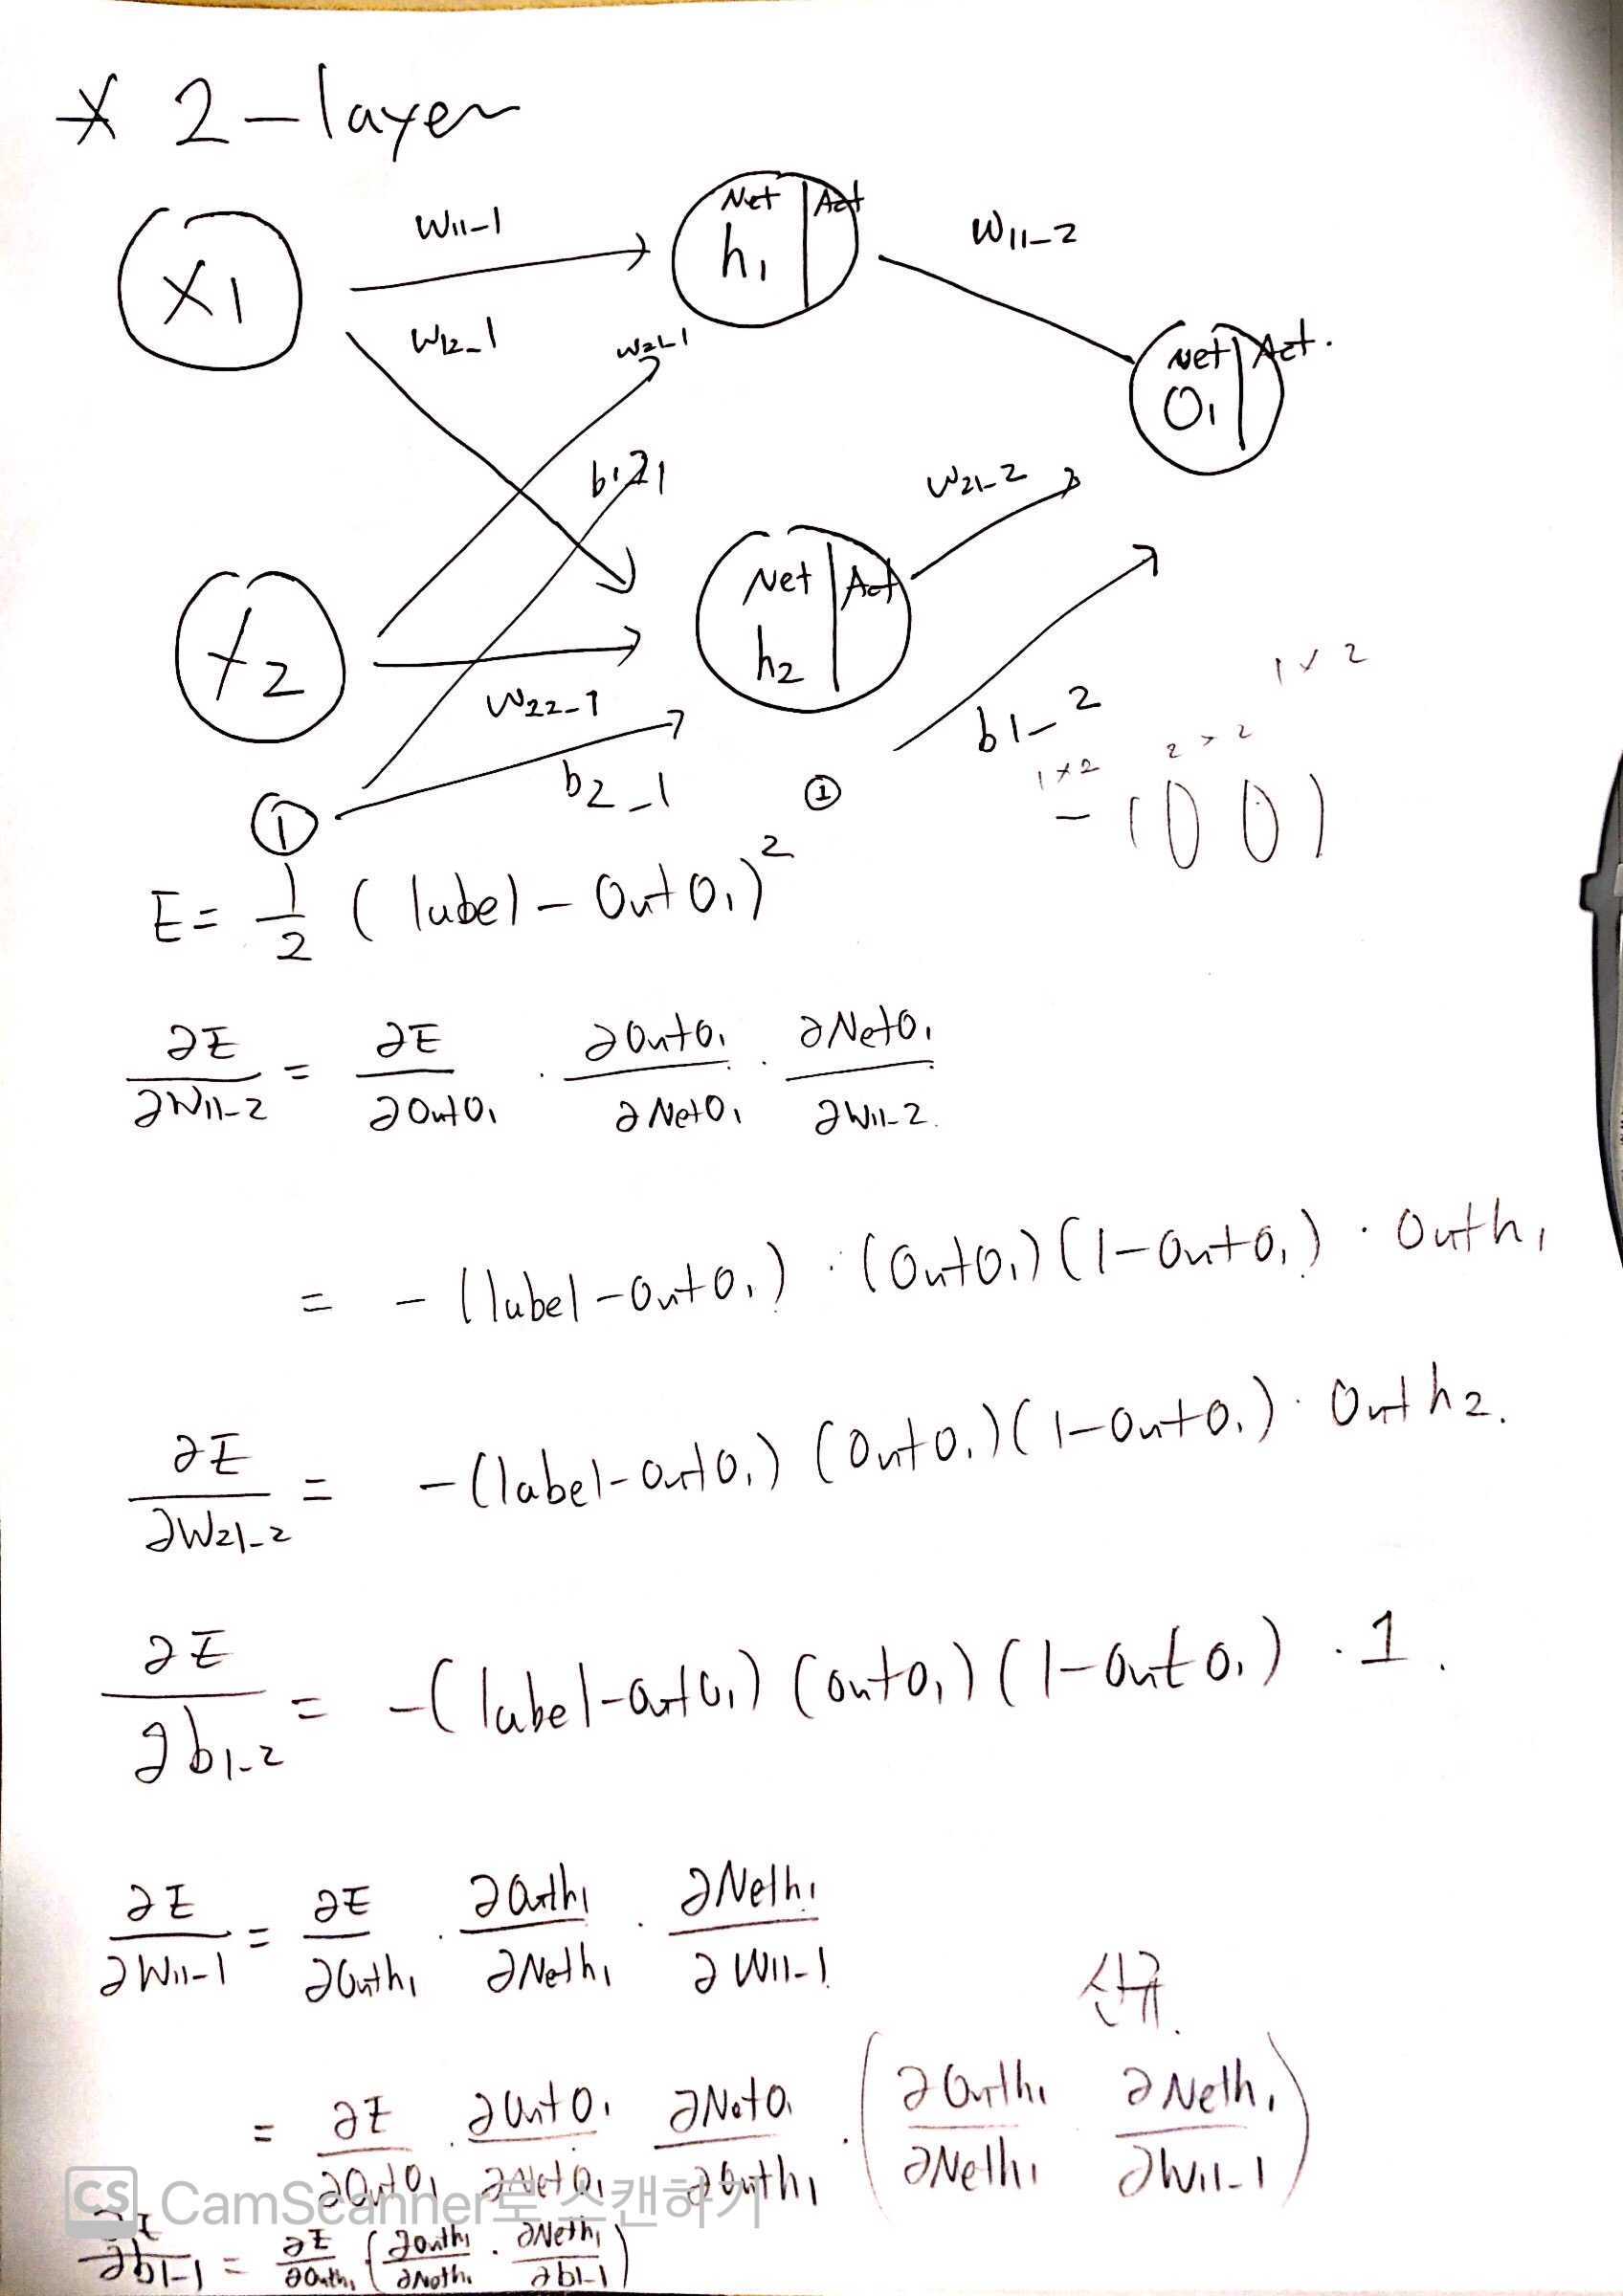 * 2-layer
Net Act
x1 w11-1 h1 w11-2
w12-1 w21-1
Net Act.
O1
b1-1 w21-2
Net Act
x2 h2
w22-1
1×2
b1-2
2×2
b2-1 1×2
1 1
= ( 0 0 )
E = 1/2 ( label - Out O1 )²
∂E/∂W11-2 = ∂E/∂OutO1 · ∂OutO1/∂NetO1 · ∂NetO1/∂W11-2.
= - (label - OutO1) · (OutO1) (1 - OutO1) · Outh1
∂E/∂W21-2 = - (label - OutO1) (OutO1) (1 - OutO1) · Outh2.
∂E/∂b1-2 = - (label - OutO1) (OutO1) (1 - OutO1) · 1.
∂E/∂W11-1 = ∂E/∂Outh1 · ∂Outh1/∂Neth1 · ∂Neth1/∂W11-1
신규.
= ∂E/∂OutO1 · ∂OutO1/∂NetO1 · ∂NetO1/∂Outh1 · ( ∂Outh1/∂Neth1 ∂Neth1/∂W11-1 )
CS CamScanner로 스캔하기
∂E/∂b1-1 = ∂E/∂Outh1 ( ∂Outh1/∂Neth1 · ∂Neth1/∂b1-1 )